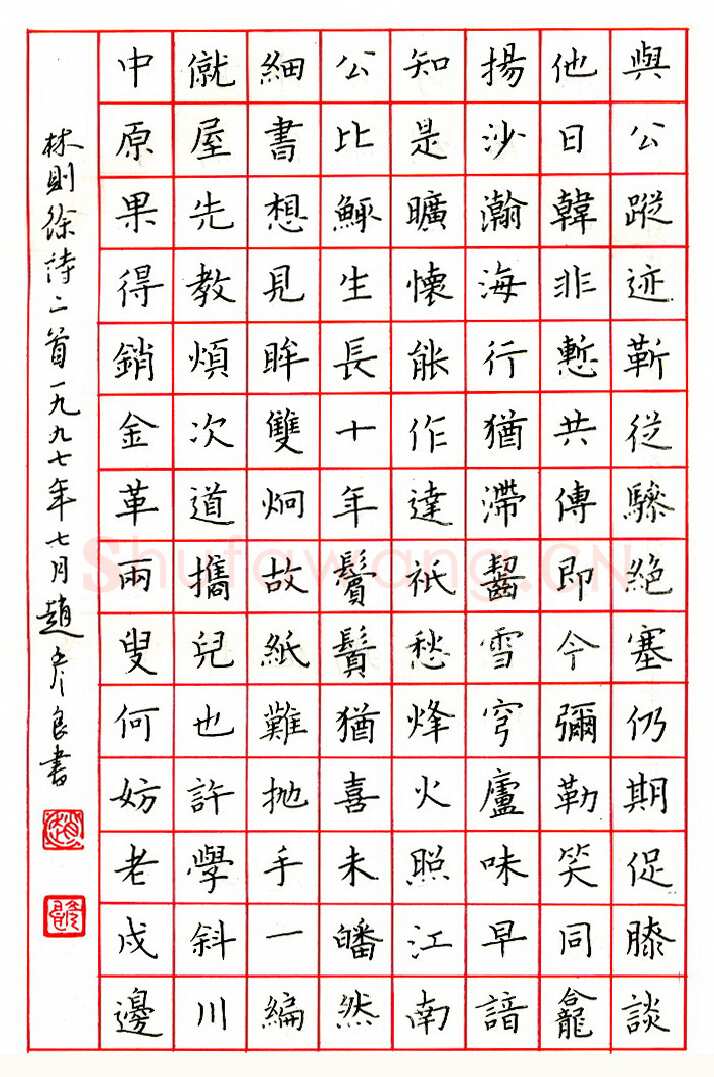 與公蹤迹靳從驂絕塞仍期促膝談
他日韓非慙共傳即今彌勒笑同龕
揚沙瀚海行猶滯齧雪穹廬味早諳
知是曠懷能作達祇愁烽火照江南
公比鯫生長十年鬢鬚猶喜未皤然
細書想見眸雙炯故紙難拋手一編
僦屋先教煩次道攜兒也許學斜川
中原果得銷金革兩叟何妨老戍邊
林則徐詩二首一九九七年七月趙彥良書
Shufawang.CN